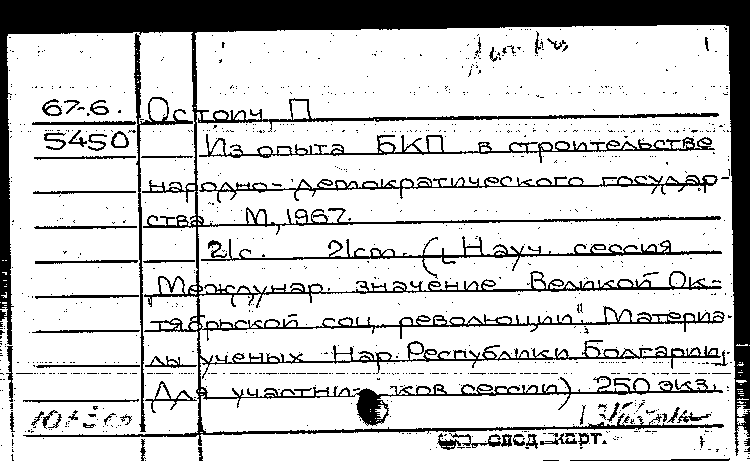 67-6. Остоич, П
5450 Из опыта БКП в строительстве
народно-демократического государ-
ства. М., 1967.
21с. 21см. (Науч. сессия
"Междунар. значение Великой Ок-
тябрьской соц. революции". Материа-
лы ученых Нар. Республики Болгарии.
Для участни- ков сессии). 250 экз.
спод. карт.